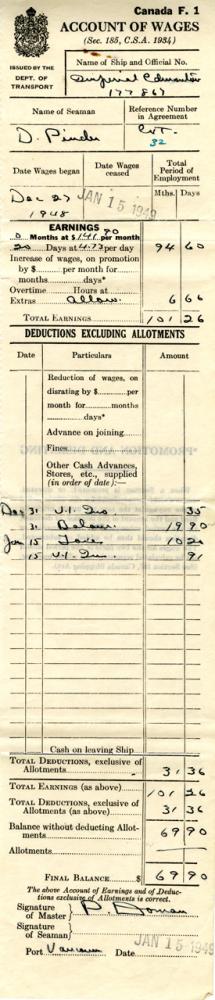 Canada F. 1
ACCOUNT OF WAGES
(Sec. 185, C.S.A. 1934)
ISSUED BY THE
DEPT. OF
TRANSPORT
Name of Ship and Official No.
Imperial Edmonton
177867
Name of Seaman
Reference Number
in Agreement
D. Pinder
CVT.
32
Date Wages began
Date Wages
ceased
Total
Period of
Employment
Mths. Days
Dec 27
1948
JAN 15 1949
EARNINGS
0 Months at $141.90 per month
20 Days at 4.73 per day 94 60
Increase of wages, on promotion
by $ per month for
months days*
Overtime Hours at
Extras allow. 6 66
TOTAL EARNINGS 101 26
DEDUCTIONS EXCLUDING ALLOTMENTS
Date Particulars Amount
Reduction of wages, on
disrating by $ per
month for months
days*
Advance on joining
Fines
Other Cash Advances,
Stores, etc., supplied
(in order of date):—
Dec 31 U.I. Ins. 35
31 19 90
Jan 15 10 20
15 U.I. Ins. 91
Cash on leaving Ship
TOTAL DEDUCTIONS, exclusive of
Allotments 31 36
TOTAL EARNINGS (as above) 101 26
TOTAL DEDUCTIONS, exclusive of
Allotments (as above) 31 36
Balance without deducting Allot-
ments 69 90
Allotments
FINAL BALANCE $ 69 90
The above Account of Earnings and of Deduc-
tions exclusive of Allotments is correct.
Signature
of Master
Signature
of Seaman
Port Vancouver Date JAN 15 1949